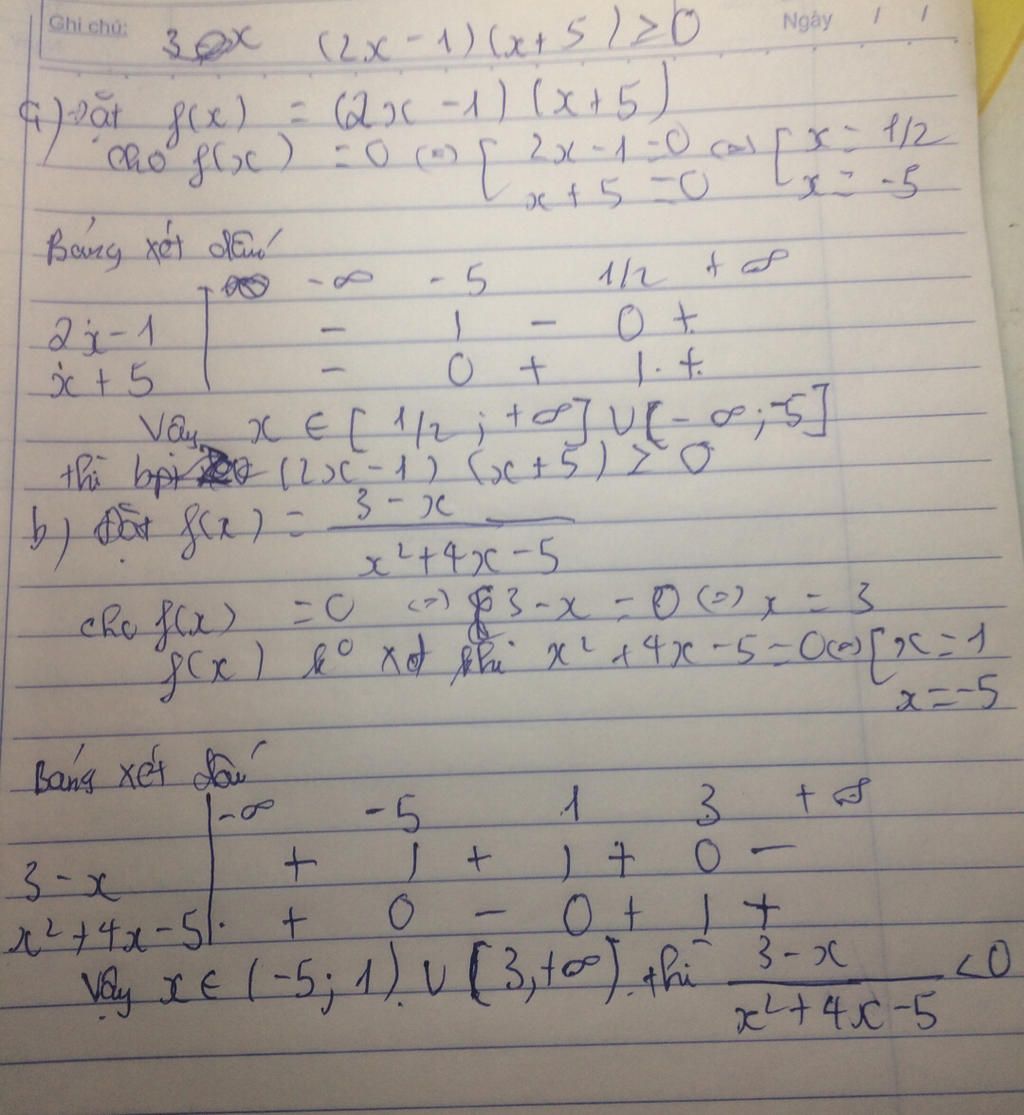 Ghi chú: Ngày / /
3 x (2x - 1)(x + 5) ≥ 0
a) Đặt f(x) = (2x - 1)(x + 5)
cho f(x) = 0 <=> [ 2x - 1 = 0 <=> [ x = 1/2
x + 5 = 0 x = -5
Bảng xét dấu
-∞ -5 1/2 +∞
2x - 1 - | - 0 +
x + 5 - 0 + | +
Vậy x ∈ [1/2 ; +∞] ∪ [-∞ ; -5]
thì (2x - 1)(x + 5) ≥ 0
b) Đặt f(x) = \frac{3 - x}{x² + 4x - 5}
cho f(x) = 0 <=> 3 - x = 0 <=> x = 3
f(x) k⁰ xđ khi x² + 4x - 5 = 0 <=> [ x = 1
x = -5
Bảng xét dấu
-∞ -5 1 3 +∞
3 - x + | + | + 0 -
x² + 4x - 5 + 0 - 0 + | +
Vậy x ∈ (-5; 1) ∪ (3, +∞) thì \frac{3 - x}{x² + 4x - 5} < 0